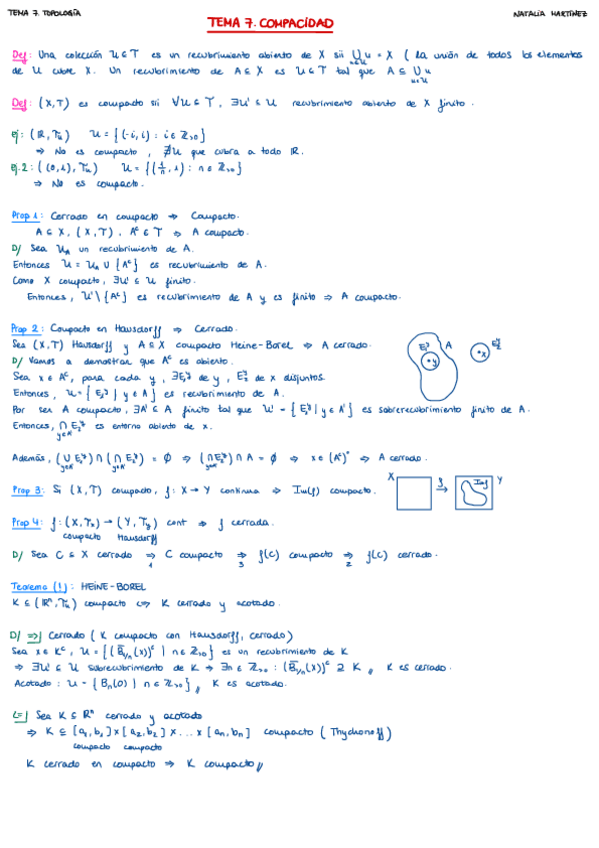 TEMA 7. TOPOLOGÍA
NATALIA MARTÍNEZ
TEMA 7. COMPACIDAD
Def: Una colección U ⊆ T es un recubrimiento abierto de X sii ⋃ u = X ( la unión de todos los elementos
u∈U
de U cubre X. Un recubrimiento de A ⊆ X es U ⊆ T tal que A ⊆ ⋃ u
u∈U
Def: (X,T) es compacto sii ∀U ⊆ T, ∃U' ⊆ U recubrimiento abierto de X finito.
Ej: (ℝ, Tu) U = {(-i, i) : i ∈ ℤ>0}
⇒ No es compacto, ∄U que cubra a todo ℝ.
Ej.2: ((0,1), Tu) U = {(1/n, 1) : n ∈ ℤ>0}
⇒ No es compacto.
Prop 1: Cerrado en compacto ⇒ Compacto.
A ⊆ X, (X,T), Aᶜ ∈ T ⇒ A compacto.
D/ Sea U_A un recubrimiento de A.
Entonces U = U_A ∪ {Aᶜ} es recubrimiento de A.
Como X compacto, ∃U' ⊆ U finito.
Entonces, U' \ {Aᶜ} es recubrimiento de A y es finito ⇒ A compacto.
Prop 2: Compacto en Hausdorff ⇒ Cerrado.
Sea (X,T) Hausdorff y A ⊆ X compacto Heine-Borel ⇒ A cerrado.
D/ Vamos a demostrar que Aᶜ es abierto.
Sea x ∈ Aᶜ, para cada y, ∃E₁ʸ de y, E₂ʸ de x disjuntos.
Entonces, U = {E₁ʸ | y ∈ A} es recubrimiento de A.
Por ser A compacto, ∃A' ⊆ A finito tal que U' = {E₁ʸ | y ∈ A'} es sobrerecubrimiento finito de A.
Entonces, ⋂ E₂ʸ es entorno abierto de x.
y∈A'
Además, (⋃ E₁ʸ) ∩ (⋂ E₂ʸ) = ∅ ⇒ (⋂ E₂ʸ) ∩ A = ∅ ⇒ x ∈ (Aᶜ)° ⇒ A cerrado.
y∈A' y∈A' y∈A'
E₁ʸ A E₂ʸ
y x
Prop 3: Si (X,T) compacto, f: X → Y continua ⇒ Im(f) compacto.
X f Imf Y
Prop 4: f: (X,Tx) → (Y,Ty) cont ⇒ f cerrada.
compacto Hausdorff
D/ Sea C ⊆ X cerrado ⇒ C compacto ⇒ f(C) compacto ⇒ f(C) cerrado.
1 3 2
Teorema (1): HEINE-BOREL
K ⊆ (ℝⁿ, Tu) compacto ⇔ K cerrado y acotado.
D/ ⇒| Cerrado (K compacto con Hausdorff, cerrado)
Sea x ∈ Kᶜ, U = {(B̄₁/ₙ(x))ᶜ | n ∈ ℤ>0} es un recubrimiento de K
⇒ ∃U' ⊆ U subrecubrimiento de K ⇒ ∃n ∈ ℤ>0 : (B̄₁/ₙ(x))ᶜ ⊇ K // K es cerrado.
Acotado: U = {Bₙ(0) | n ∈ ℤ>0} // K es acotado.
⇐| Sea K ⊆ ℝⁿ cerrado y acotado
⇒ K ⊆ [a₁,b₁]×[a₂,b₂]×...×[aₙ,bₙ] compacto (Thychonoff)
compacto compacto
K cerrado en compacto ⇒ K compacto //